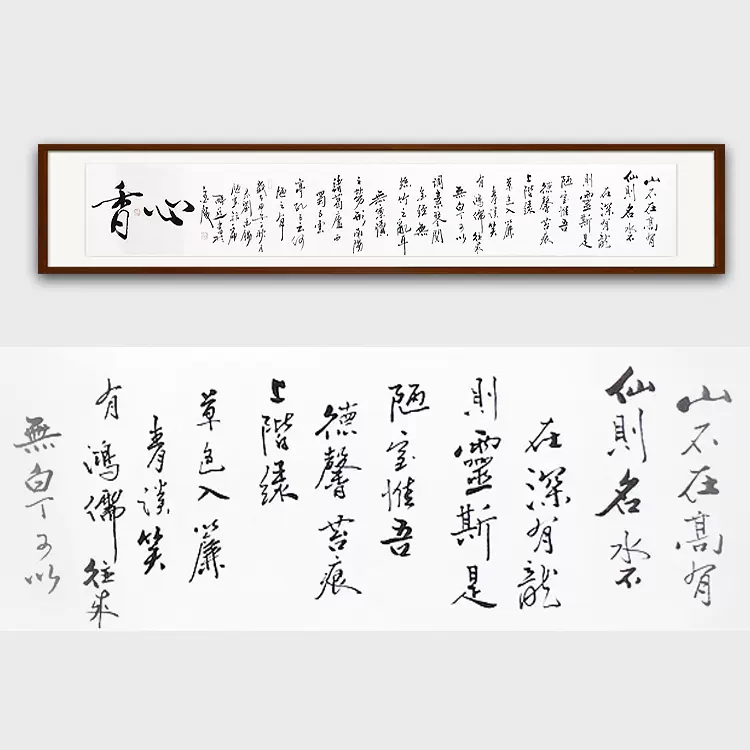 山不在高有
仙則名水不
在深有龍
則靈斯是
陋室惟吾
德馨苔痕
上階緑
草色入簾
青談笑
有鴻儒往來
無白丁可以
調素琴閱
金經無
絲竹之亂耳
無案牘
之勞形南陽
諸葛廬西
蜀子雲
亭孔子云何
陋之有
心香
山不在高有
仙則名水不
在深有龍
則靈斯是
陋室惟吾
德馨苔痕
上階緑
草色入簾
青談笑
有鴻儒往來
無白丁可以